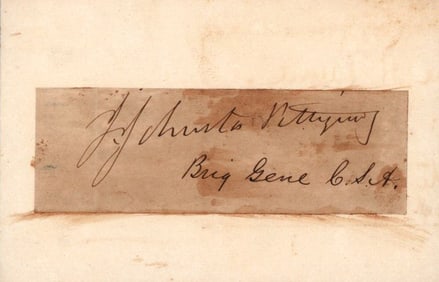 J. Johnston Pettigrew
Brig Genl C.S.A.